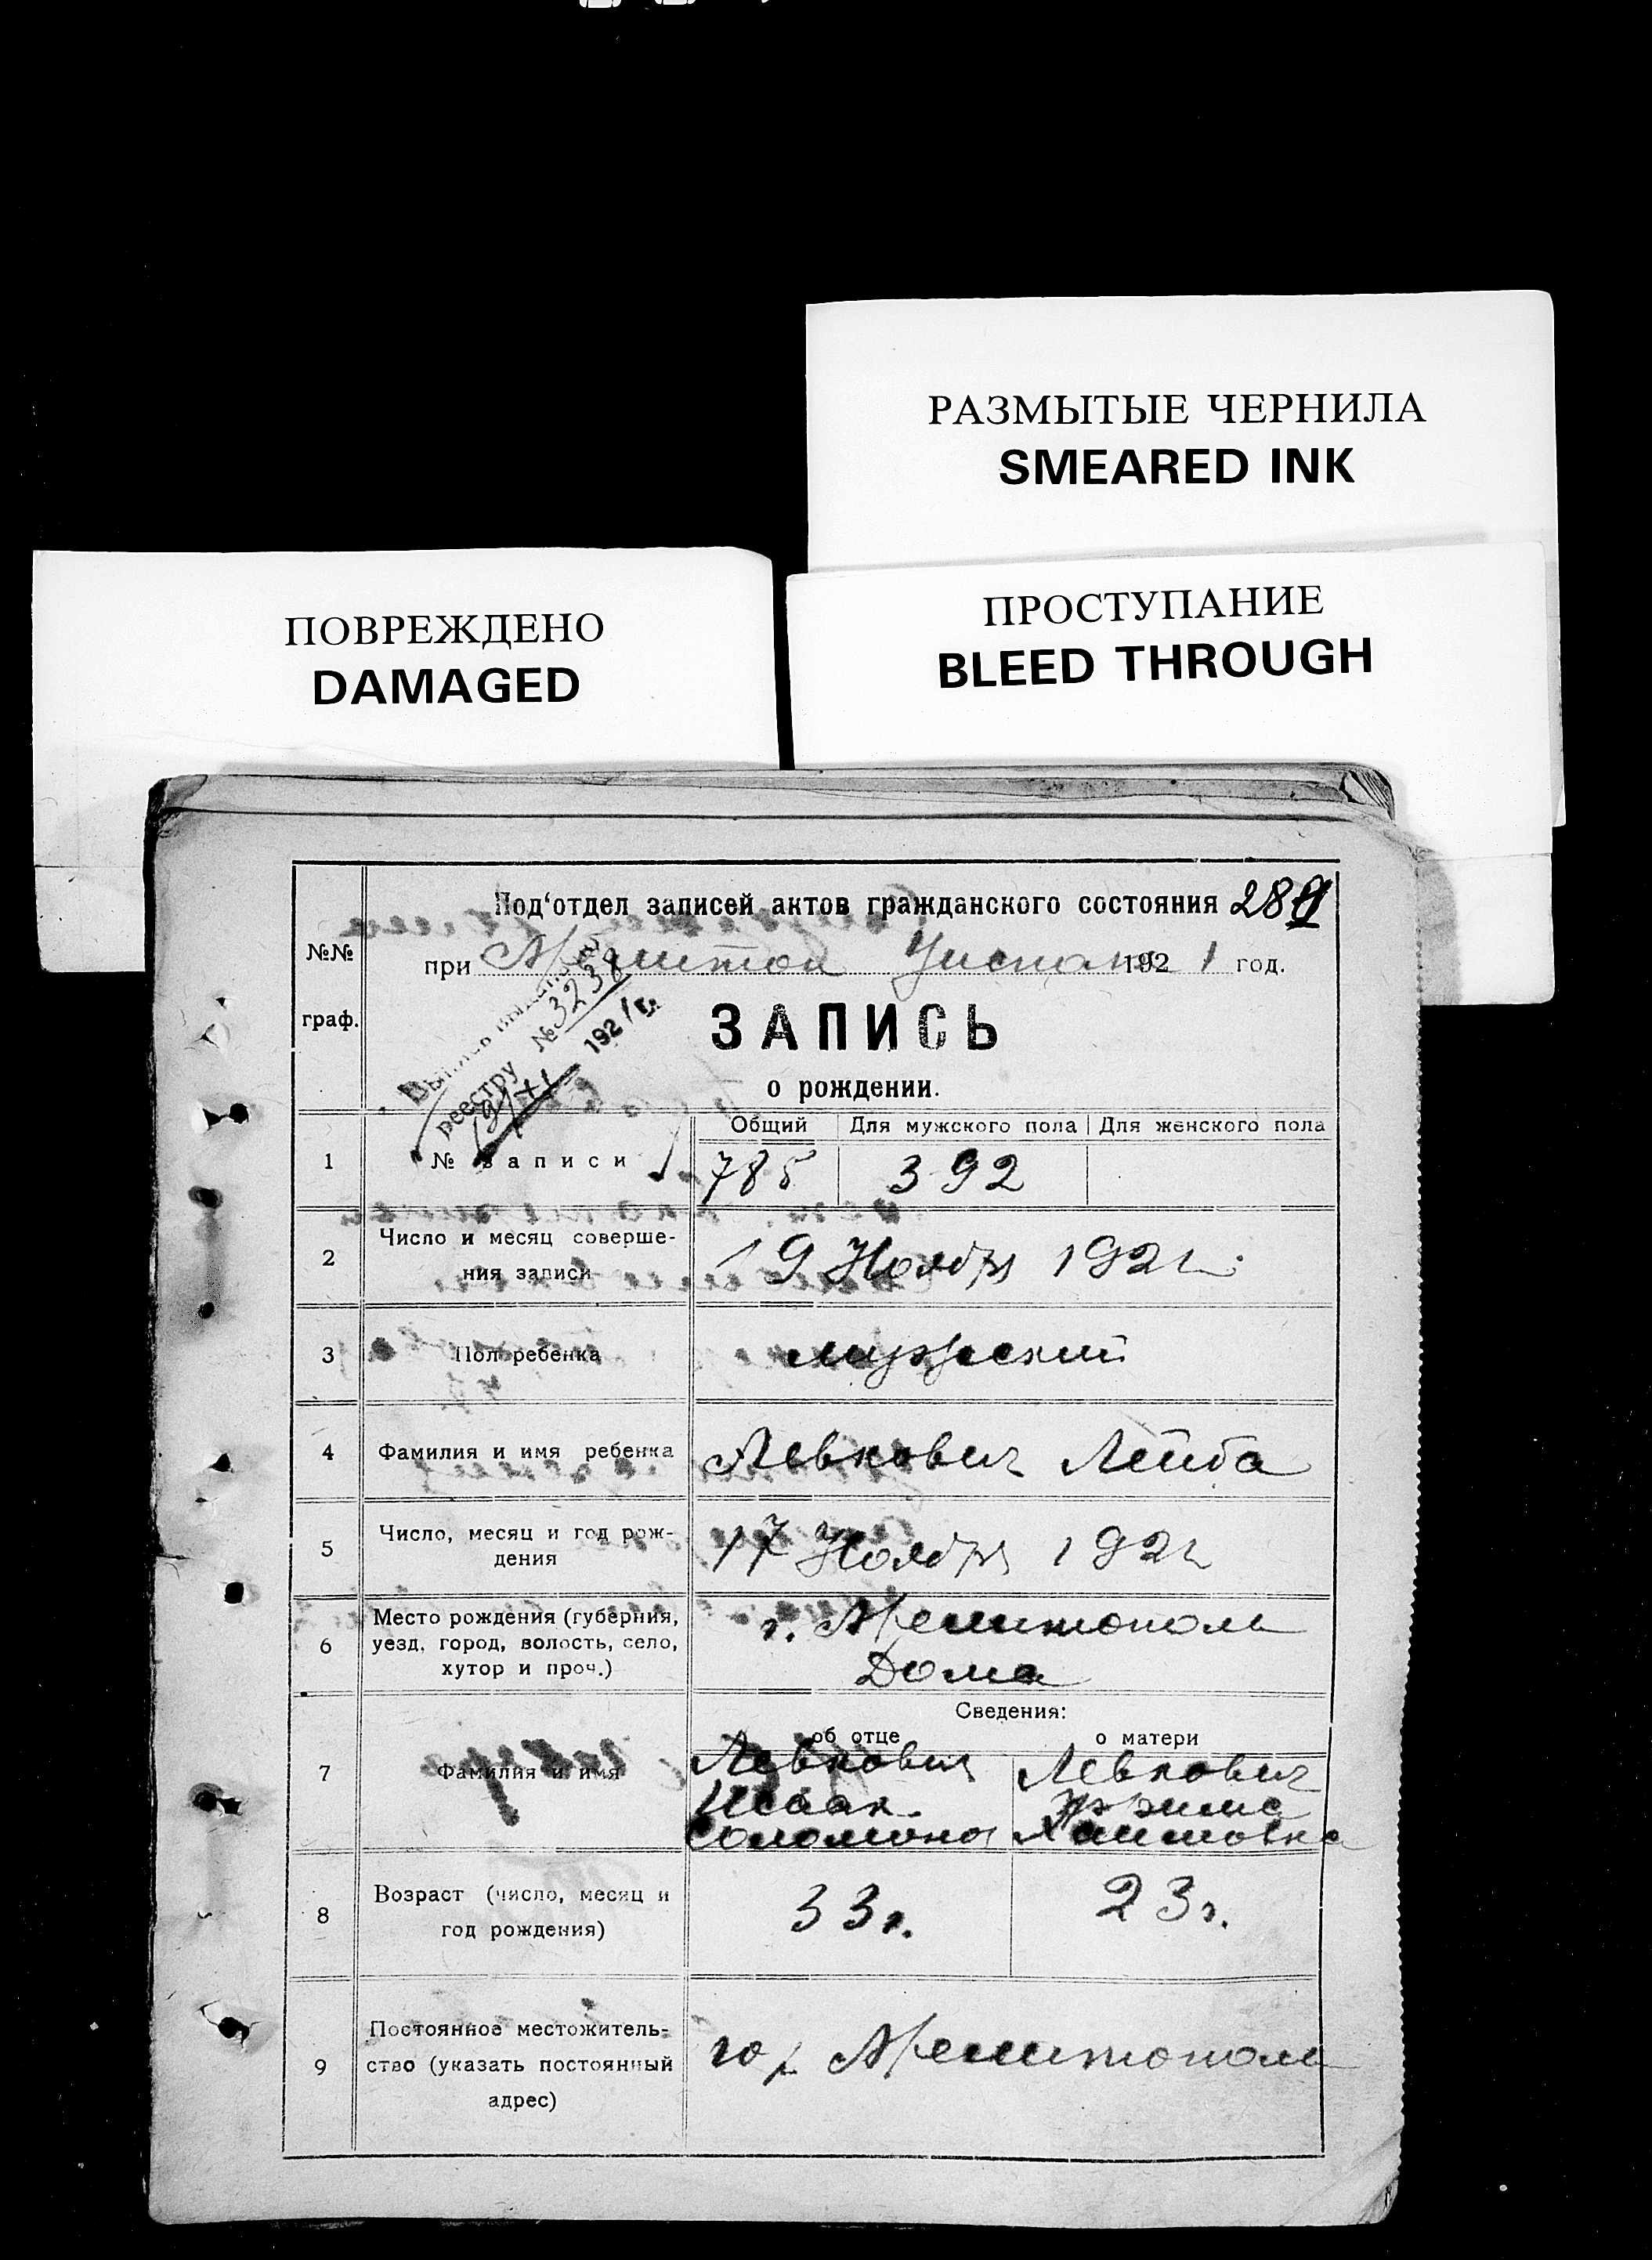 РАЗМЫТЫЕ ЧЕРНИЛА
SMEARED INK
ПРОСТУПАНИЕ
BLEED THROUGH
ПОВРЕЖДЕНО
DAMAGED
Под'отдел записей актов гражданского состояния
№№
граф.
при 1921 год.
реестру №3238
192/г.
ЗАПИСЬ
о рождении.
Общий Для мужского пола Для женского пола
1 № записи 785 392
2 Число и месяц соверше-
ния записи
19 Ноября 1921
3 Пол ребенка мужеский
4 Фамилия и имя ребенка Левкович Лейба
5 Число, месяц и год рож-
дения
17 Ноября 1921
6 Место рождения (губерния,
уезд, город, волость, село,
хутор и проч.)
г. Мелитополь
Дома
Сведения:
об отце о матери
7 Фамилия и имя
Левкович
Исаак
Левкович
Хаимовна
8 Возраст (число, месяц и
год рождения)
33 г. 23 г.
9 Постоянное местожитель-
ство (указать постоянный
адрес)
гор Мелитополь